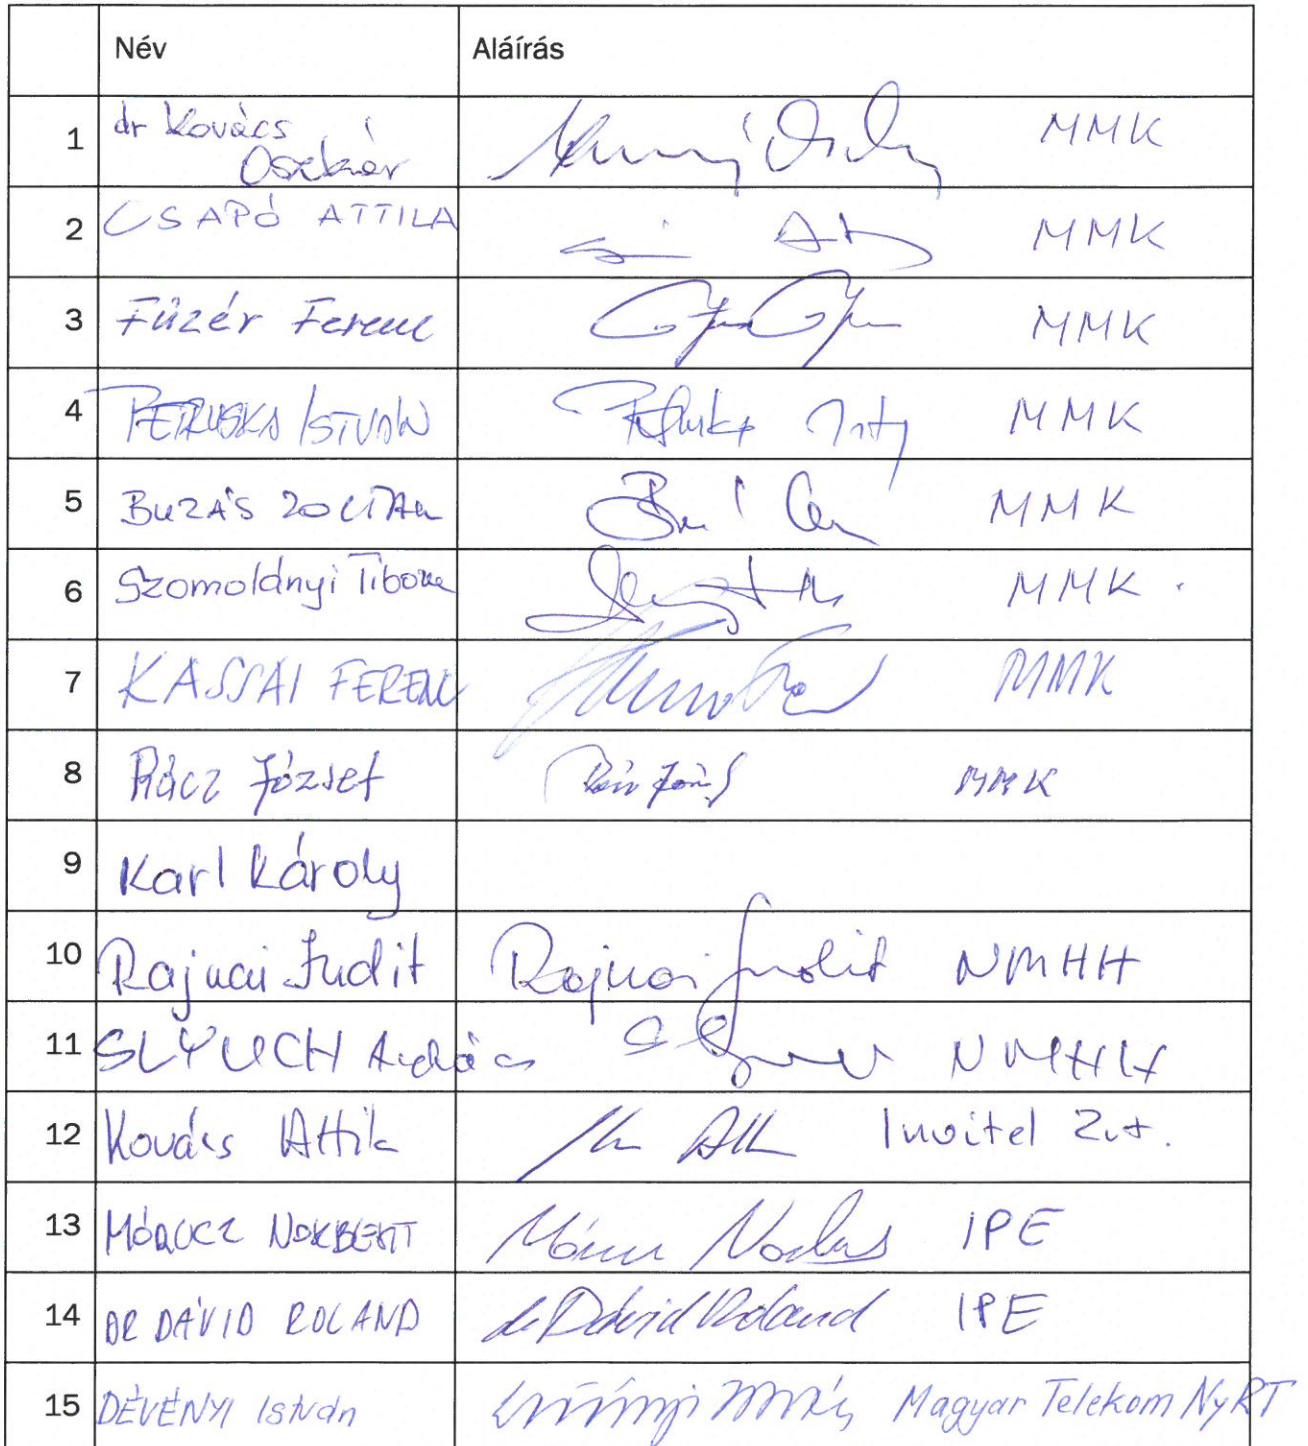 Név Aláírás
1 dr Kovács MMK
Oszkár
2 CSAPÓ ATTILA MMK
3 Fűzér Ferenc MMK
4 PETRUSKA ISTVÁN MMK
5 BUZÁS ZOLTÁN MMK
6 Szomolányi Tiborné MMK
7 KASSAI FERENC MMK
8 Rácz József MMK
9 Karl Károly
10 Rajnai Judit Rajnai Judit NMHH
11 SLYUCH András NMHH
12 Kovács Attila Invitel Zrt.
13 MÓRUCZ NORBERT IPE
14 DR DÁVID ROLAND dr Dávid Roland IPE
15 DÉVÉNYI István Magyar Telekom NyRT